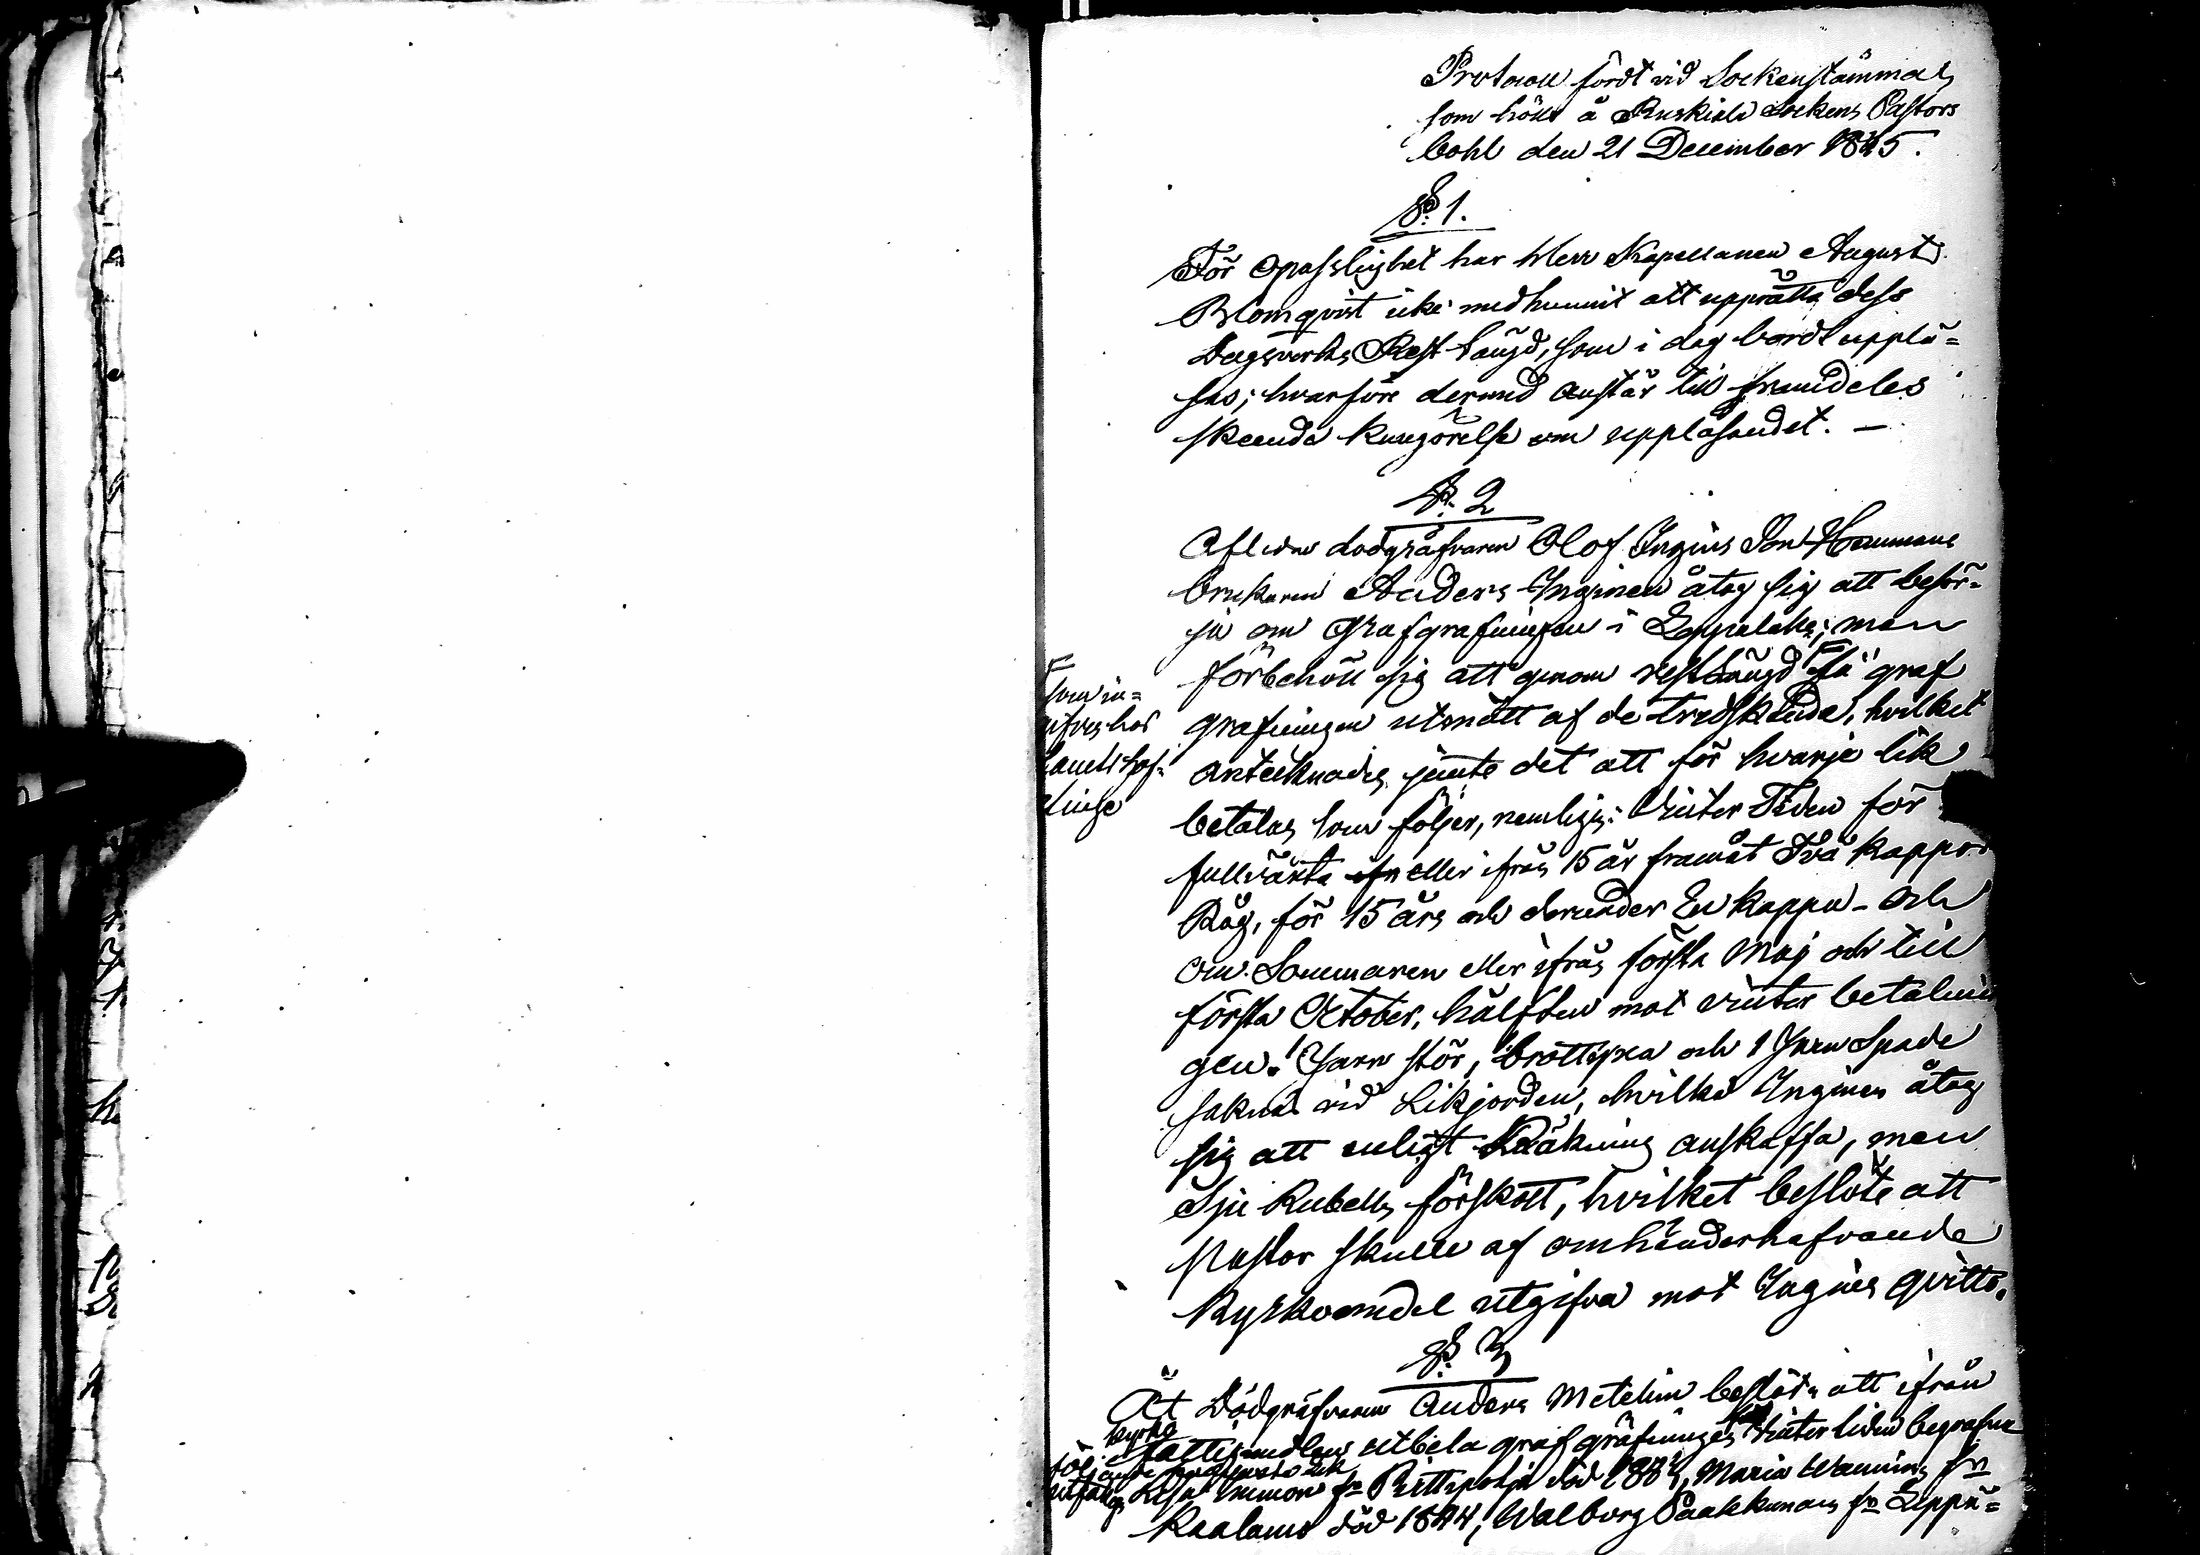 Protocoll fördt vid Sockenstämma
som hölls å Ruskiala Sockens Pastors
bohl den 21 December 1845.
§. 1.
För opasslighet har Herr Kapellanen August
Blomqvist icke medhunnit att upprätta dess
Dagsverks Rest längd, som i dag bordt upplä-
sas; hvarföre dermed anstår till framdeles
skeende kungörelse om uppläsandet. —
§. 2
Aflidne dödgräfvaren Olof Ingins Son Hemmans
brukaren Anders Inginen åtog sig att besör-
ja om grafgrafningen i; men
förbehöll sig att genom restlängd F få graf
grafningen utmätt af de tredskande, hvilket
antecknades jemte det att för hvarje lik
betalas som följer, nemligen: Vinter Tiden för
fullväxta eller ifrån 15 år framåt Två kappor
Råg, för 15 års och derunder En kappa - och
om Sommaren eller ifrån första Maj och till
första October, hälften mot vinter betalnin
gen. 1 Jern stör, 1 brottyxa och 1 Jern Spade
saknas vid Likjorden, hvilka Inginen åtog
sig att enligt Räkning anskaffa, men
Sju Rubels förskott, hvilket beslöts att
Pastor skulle af omhänderhafvande
Kyrkomedel utgifva mot Ingines qvitto.
F
som in-
gifves hos
Landshöf-
dinge
§. 3
Åt Dödgräfvaren Anders Metelin beslöts att ifrån
kyrko
medlen utbetala graf gräfningen Vintertiden begrafne
följande
Lisa Immon fr. död, Maria fr.
Kaalamo död 1844, Walborg Paakkunain fr. Leppä-